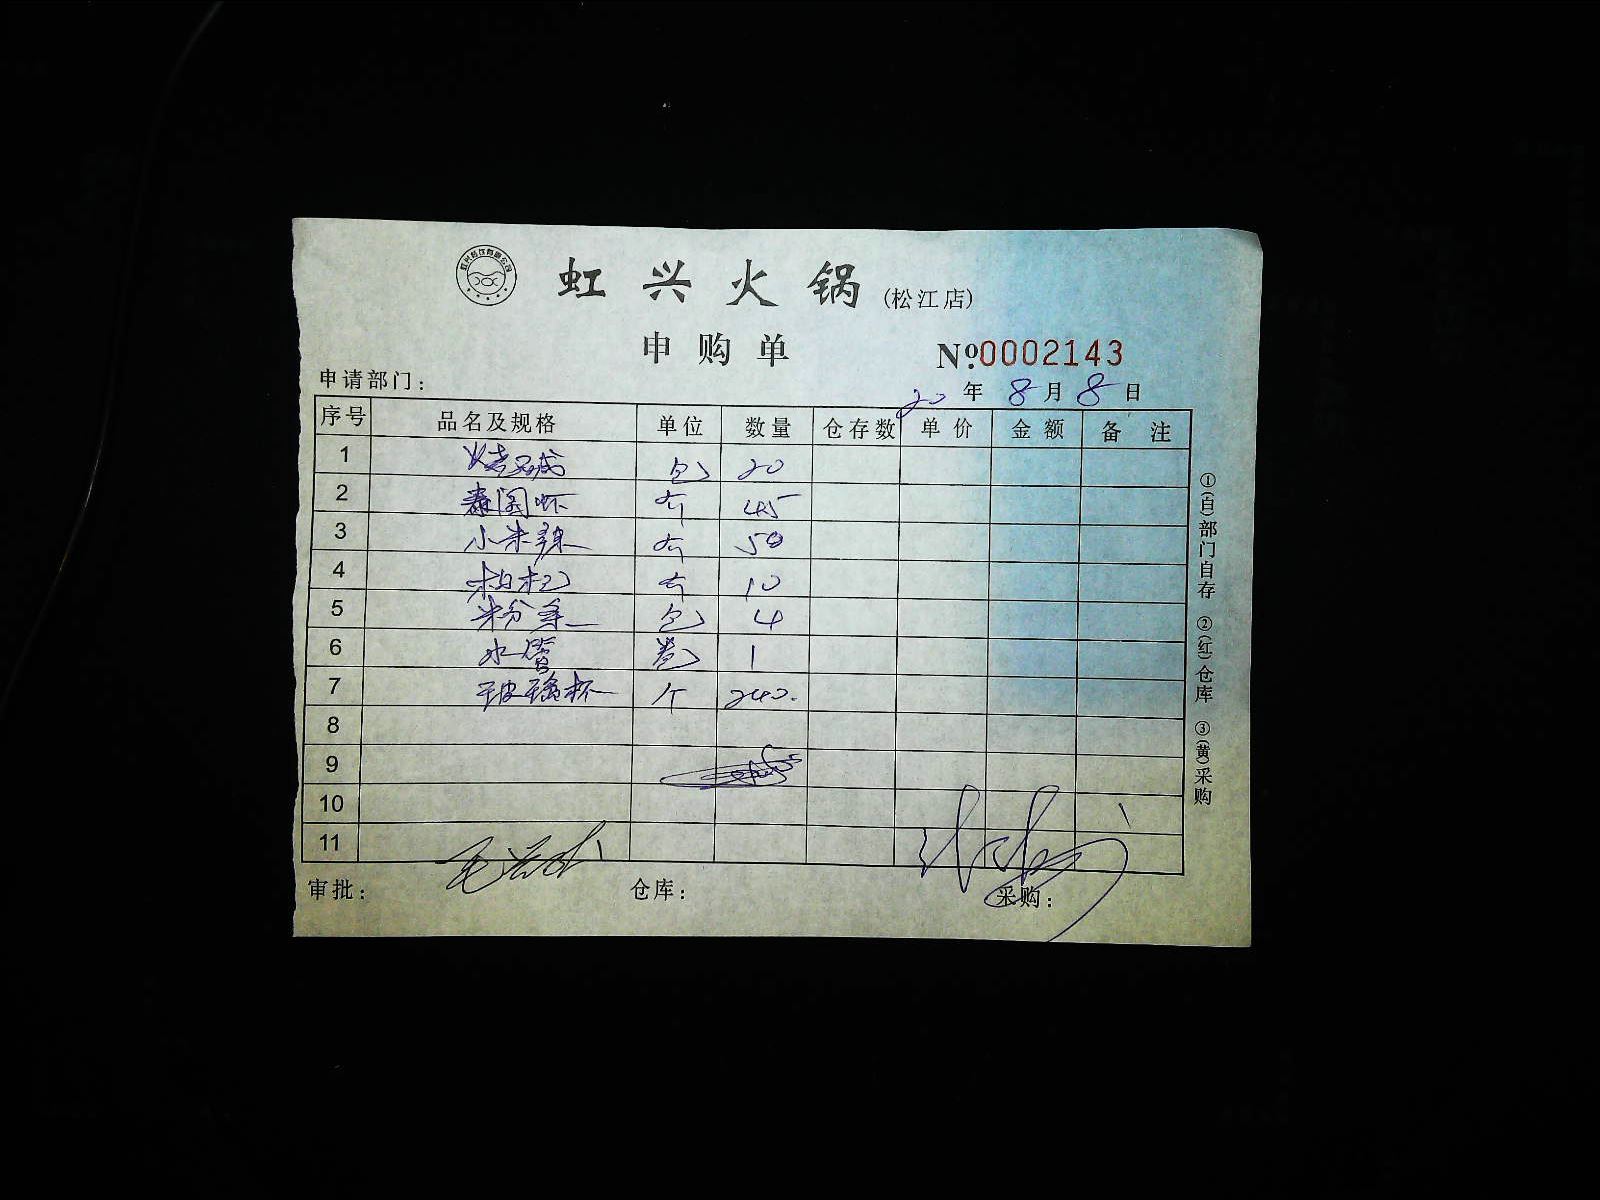 虹兴火锅(松江店)
申购单 №0002143
申请部门: 20年8月8日
序号 品名及规格 单位 数量 仓存数 单价 金额 备注
1 包 20
2 泰国虾 斤 45
3 小米辣 斤 50
4 斤 10
5 米分 包 4
6 水管 卷 1
7 玻璃杯 个 240.
8
9
10
11
审批: 仓库: 采购:
①(白)部门自存 ②(红)仓库 ③(黄)采购